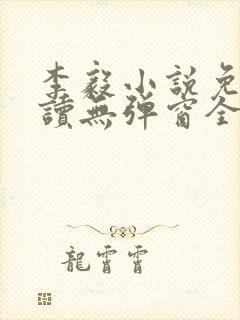 李毅小說免
讀無彈窗全
龍霄霄